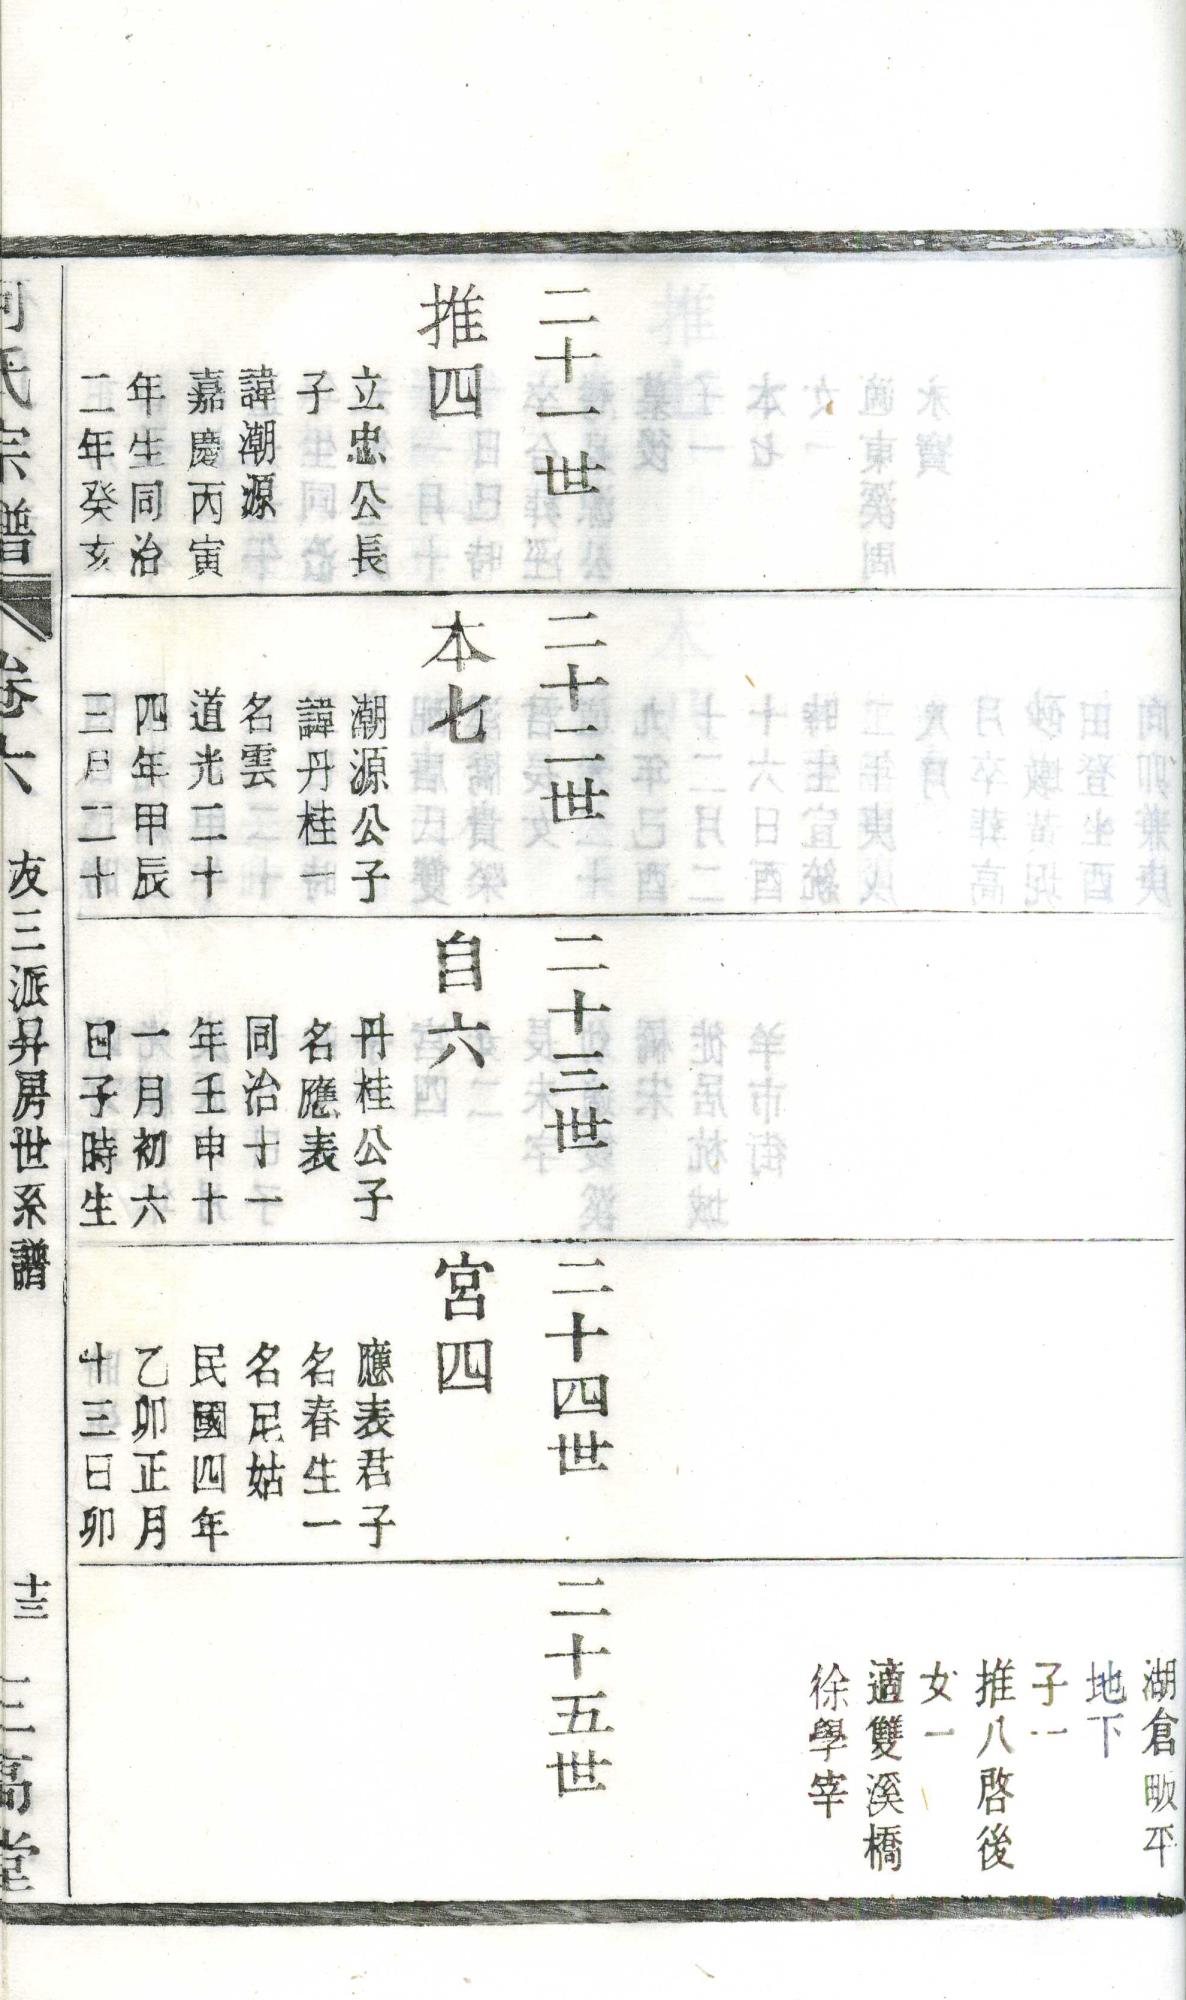 湖倉畈平
地下
子一
推八啓後
女一
適雙溪橋
徐學宰
二十一世
推四
立忠公長
子
諱潮源
嘉慶丙寅
年生同治
二年癸亥
二十二世
本七
潮源公子
諱丹桂一
名雲
道光二十
四年甲辰
三月二十
二十三世
自六
丹桂公子
名應表
同治十一
年壬申十
一月初六
日子時生
二十四世
宮四
應表君子
名春生一
名足姑
民國四年
乙卯正月
十三日卯
二十五世
何氏宗譜
卷六
友三派昇房世系譜
十三
三高堂